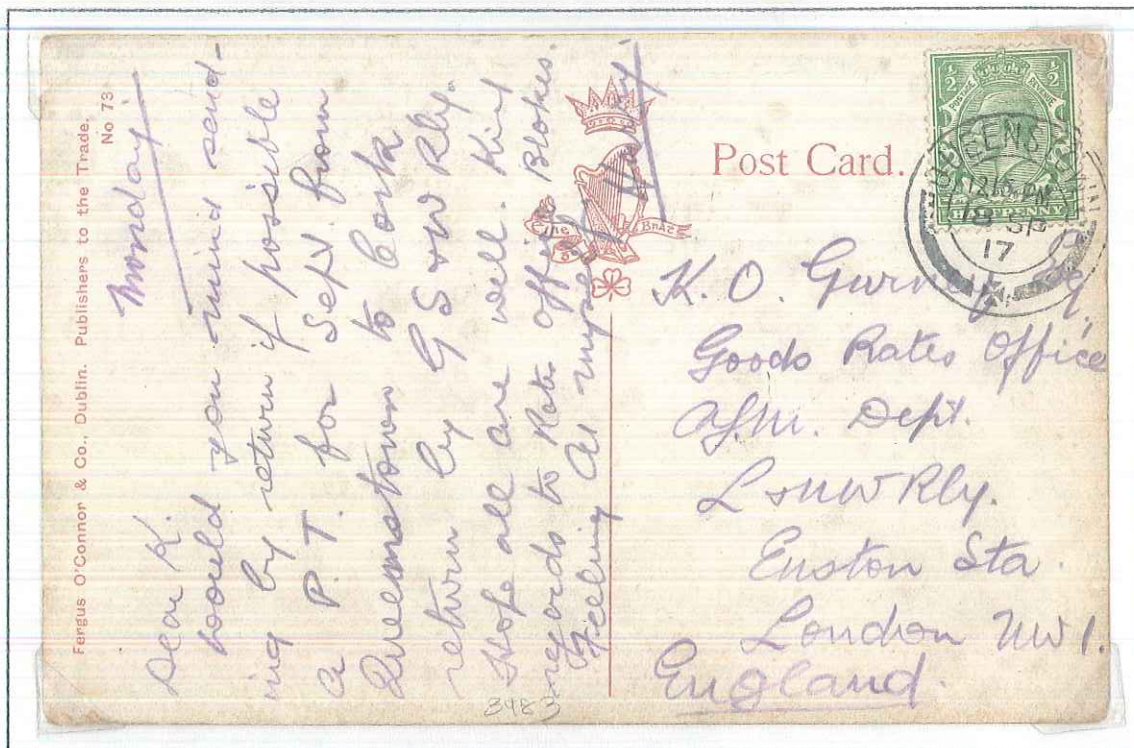 Fergus O'Connor & Co., Dublin. Publishers to the Trade.
No 73
Monday
Dear K.
Would you mind send-
ing by return if possible
a P.T. for Self. from
Queenstown to Cork
return by G S & W Rly.
Hope all are well. Kind
regards to Rates office Blokes.
Feeling A1 myself.
Post Card.
½ ½
POSTAGE REVENUE
HALFPENNY
QUEENSTOWN
12 15 PM
18 SP
17
K. O. Gurney Esq.
Goods Rates Office
Dept.
L & NW Rly.
Euston Sta.
London NW1.
England.
3483